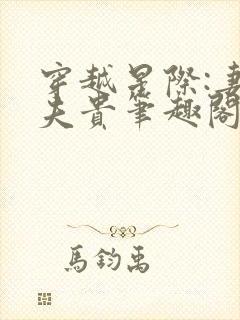 穿越星際:妻
夫貴筆趣閣
馬鈞禹